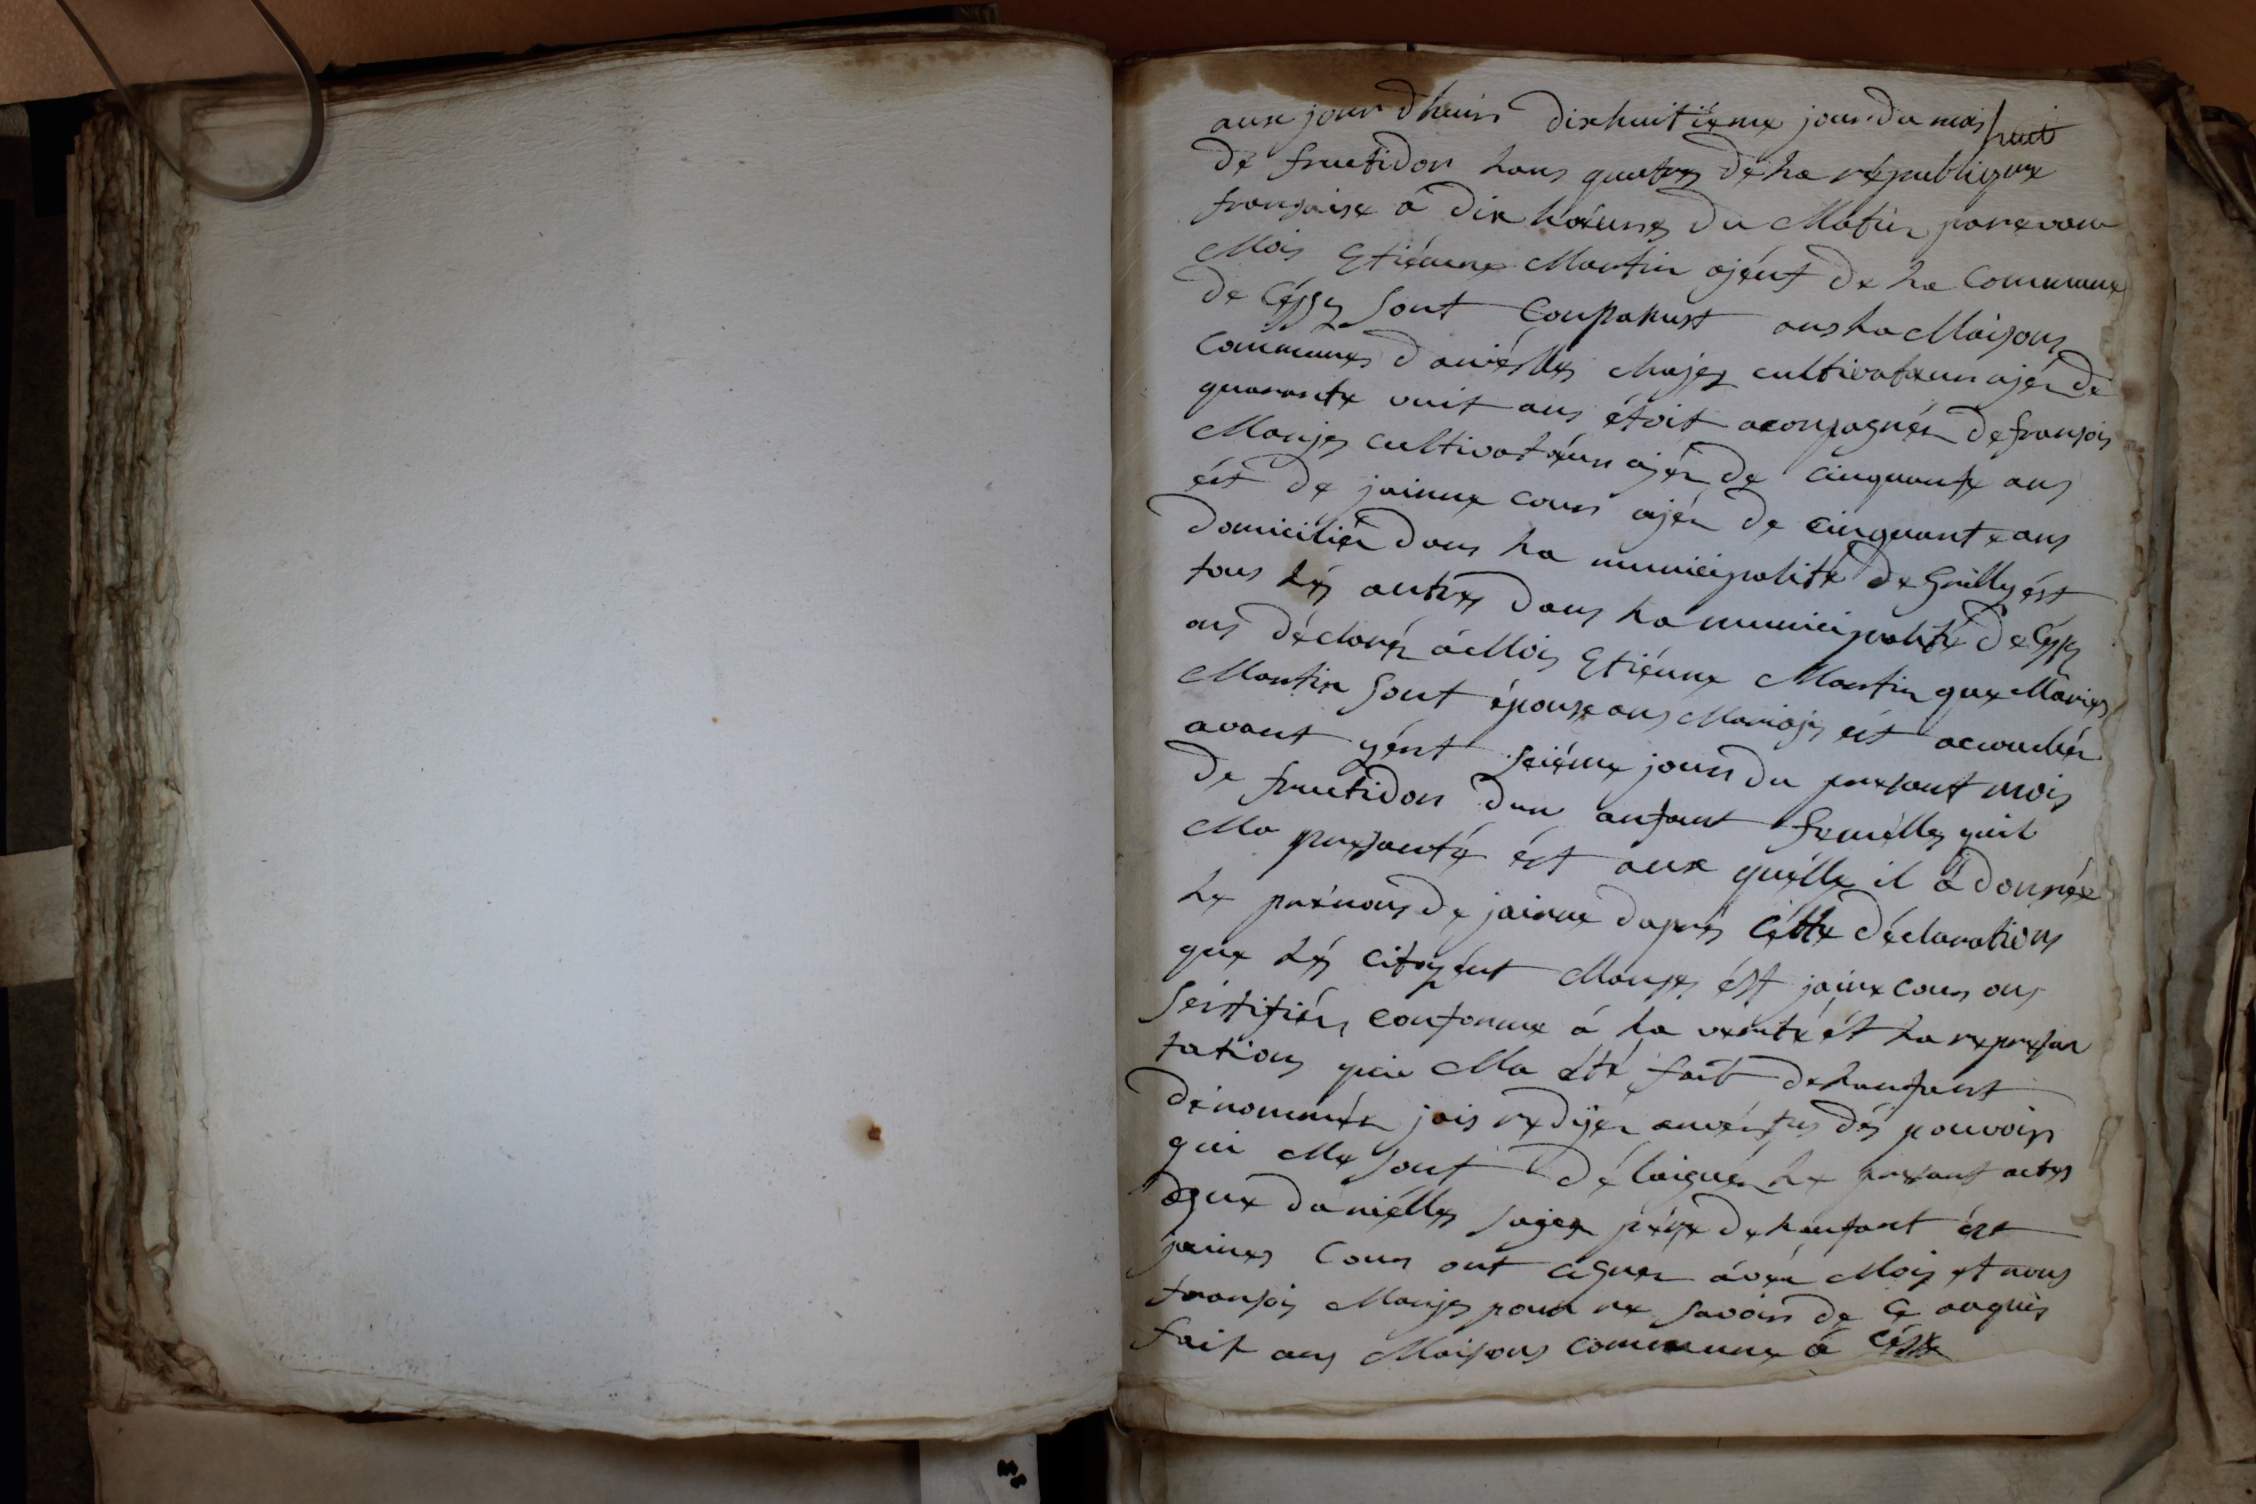 aux jour dhuis dixhuitiéme jour du mois huit
de fructidor lans quatres de la republique
fransaise á dix hoeures du Matin parevans
Mois Etiénne Martin ajént de la Commune
de Céssy sont Conparust ans la Maisons
Communes daniélles cultivateur ajér de
quarante vuit ans étoit aconpagnér de fransois
Monjes cultivateur ajér de cinquante ans
ést de jainne cours ajér de cinquante ans
domiciliér dans la municipalité de Grilly ést
tous lés autres dans la municipalité de Céssy
ons déclarér á Mois Etiénne Martin que Maries
Martin sont épouse ans Mariajes ést acouchér
avant yért seiéme jours du presant mois
de fructidor dun anfant femélles quil
Ma presanté ést aux quélle il á donnée
le prénons de jainne daprés cétte déclarations
que lés citoyént Monjes ést jaine cours ons
sértifiér conforme á la verité ést la represan
tations qui Ma été fait de lanfant
dénommér jais redijér anvértus dés pouvoirs
qui Me sont délaiguér le presant actes
que daniélles pére de lanfant ést
jaines Cours ont cignér avéc Mois et nous
fransois Monjes pour ne savoir de ce anquis
fait ans Maisons commune á